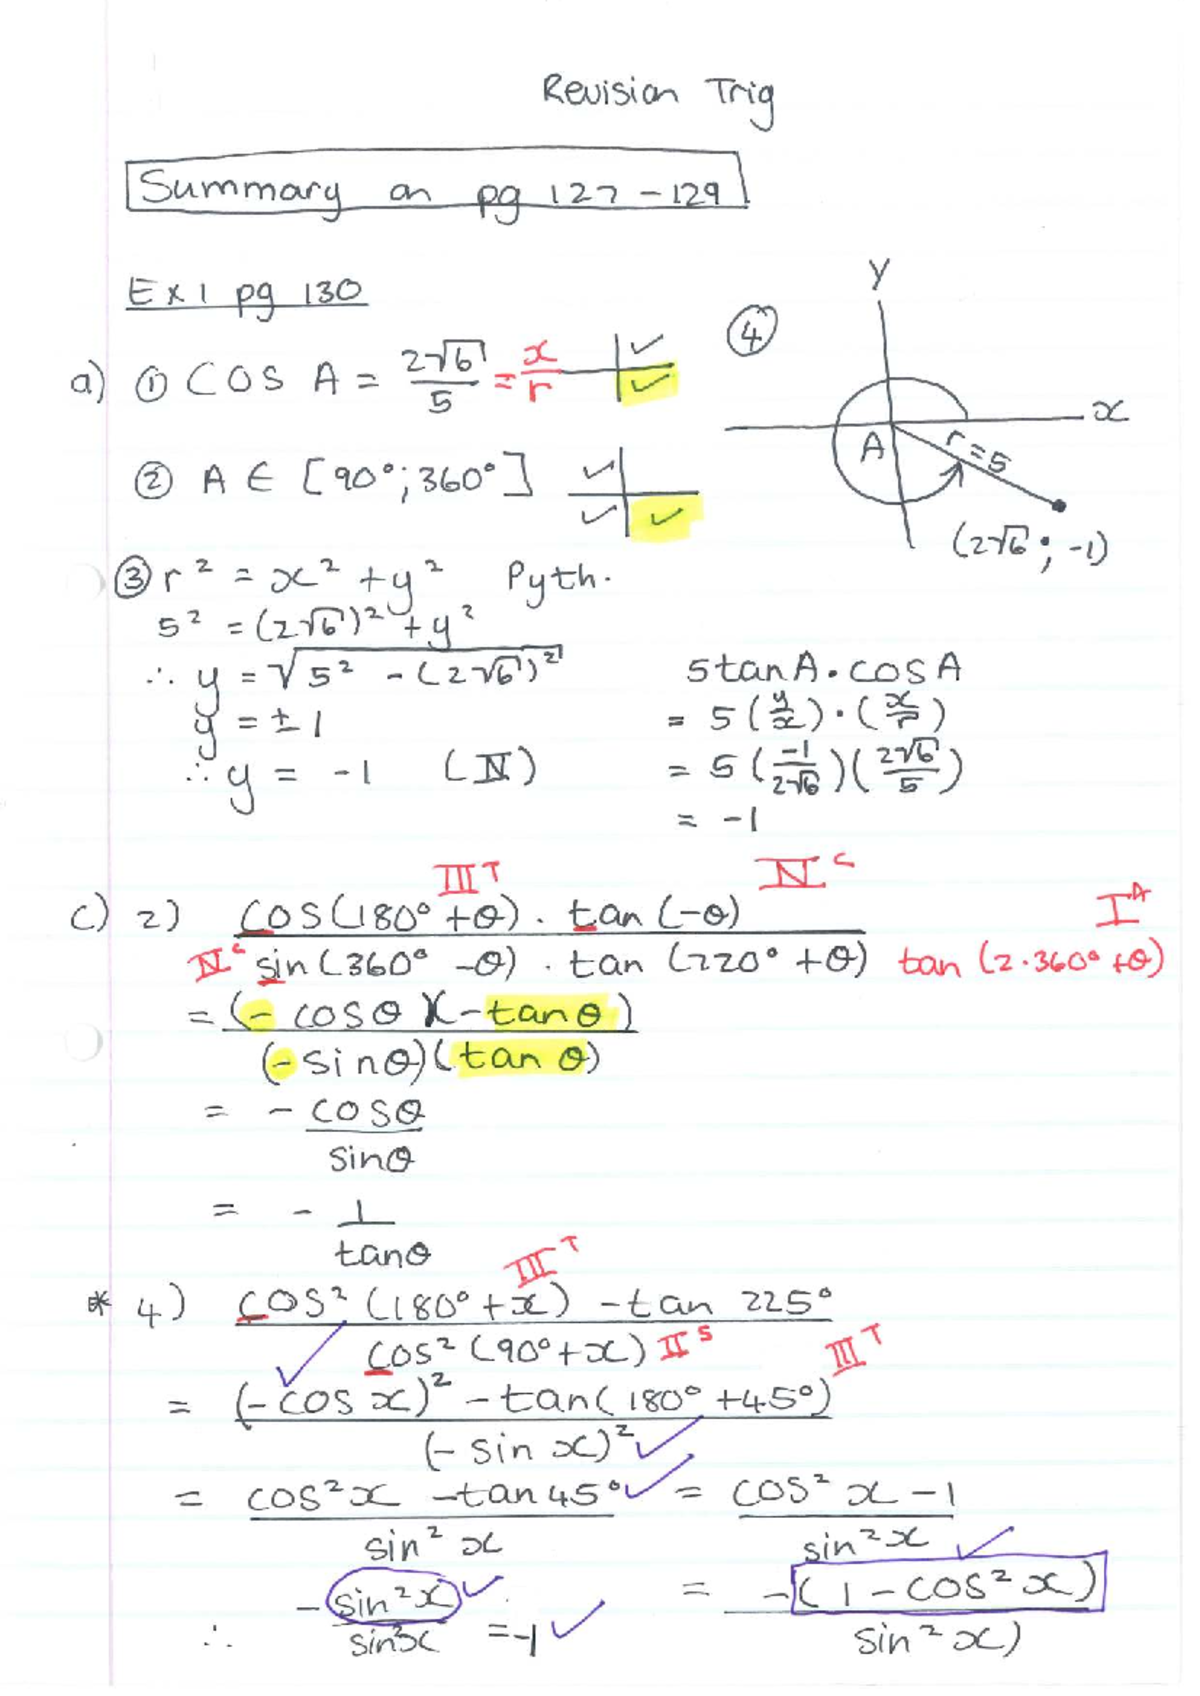 Revision Trig
Summary on pg 127-129
Ex 1 pg 130
a) ① COS A = 2√6/5 = x/r
② A ∈ [90°; 360°]
③ r² = x² + y² Pyth.
5² = (2√6)² + y²
∴ y = √5² - (2√6)²
y = ± 1
∴ y = -1 (IV)
④
y
x
A
r=5
(2√6 ; -1)
5tanA . cosA
= 5(y/x) . (x/r)
= 5(-1/2√6)(2√6/5)
= -1
III T
IV C
I A
c) 2) cos(180° + θ) . tan(-θ)
IV C sin(360° - θ) . tan(720° + θ) tan(2.360° + θ)
= (-cosθ)(-tanθ)
(-sinθ)(tanθ)
= - cosθ
sinθ
= - 1
tanθ
III T
* 4) cos²(180° + x) - tan 225°
cos²(90° + x) II S
III T
= (-cos x)² - tan(180° + 45°)
(-sin x)²
= cos²x - tan45° = cos²x - 1
sin²x sin²x
= -(1 - cos²x)
sin²x)
∴ - sin²x
sin²x = -1